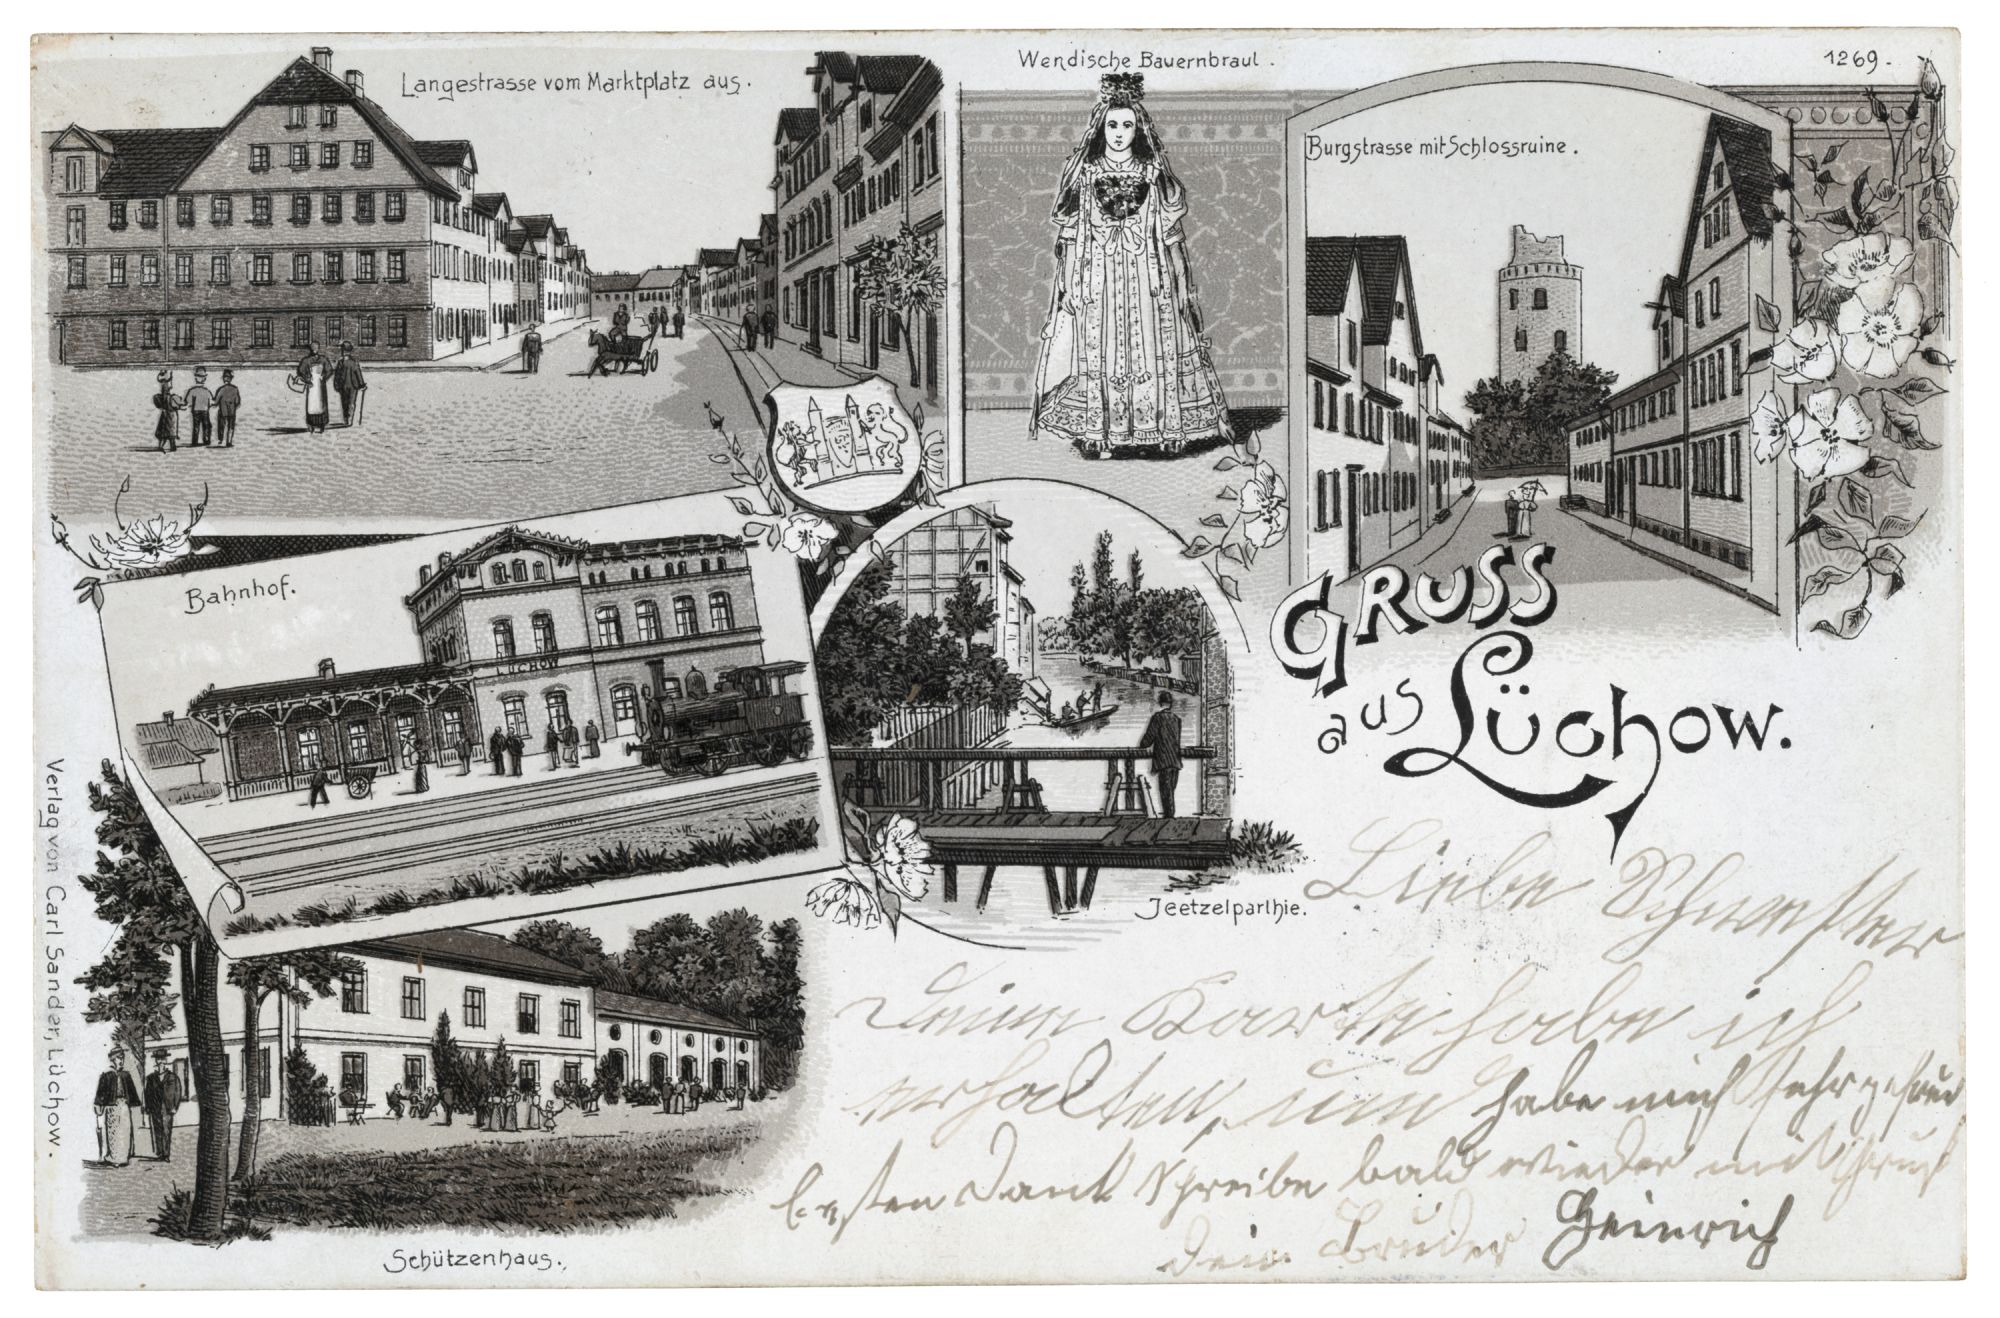 Langestrasse vom Marktplatz aus.
Wendische Bauernbraut.
1269.
Burgstrasse mit Schlossruine.
Bahnhof.
LÜCHOW
GRUSS
aus Lüchow.
Jeetzelparthie.
Schützenhaus.
Verlag von Carl Sander, Lüchow.
Liebe Schwester
Deine Karte habe ich
erhalten, und habe mich sehr gefreut
besten Dank Schreibe bald wieder mit Gruß
dein Bruder Heinrich